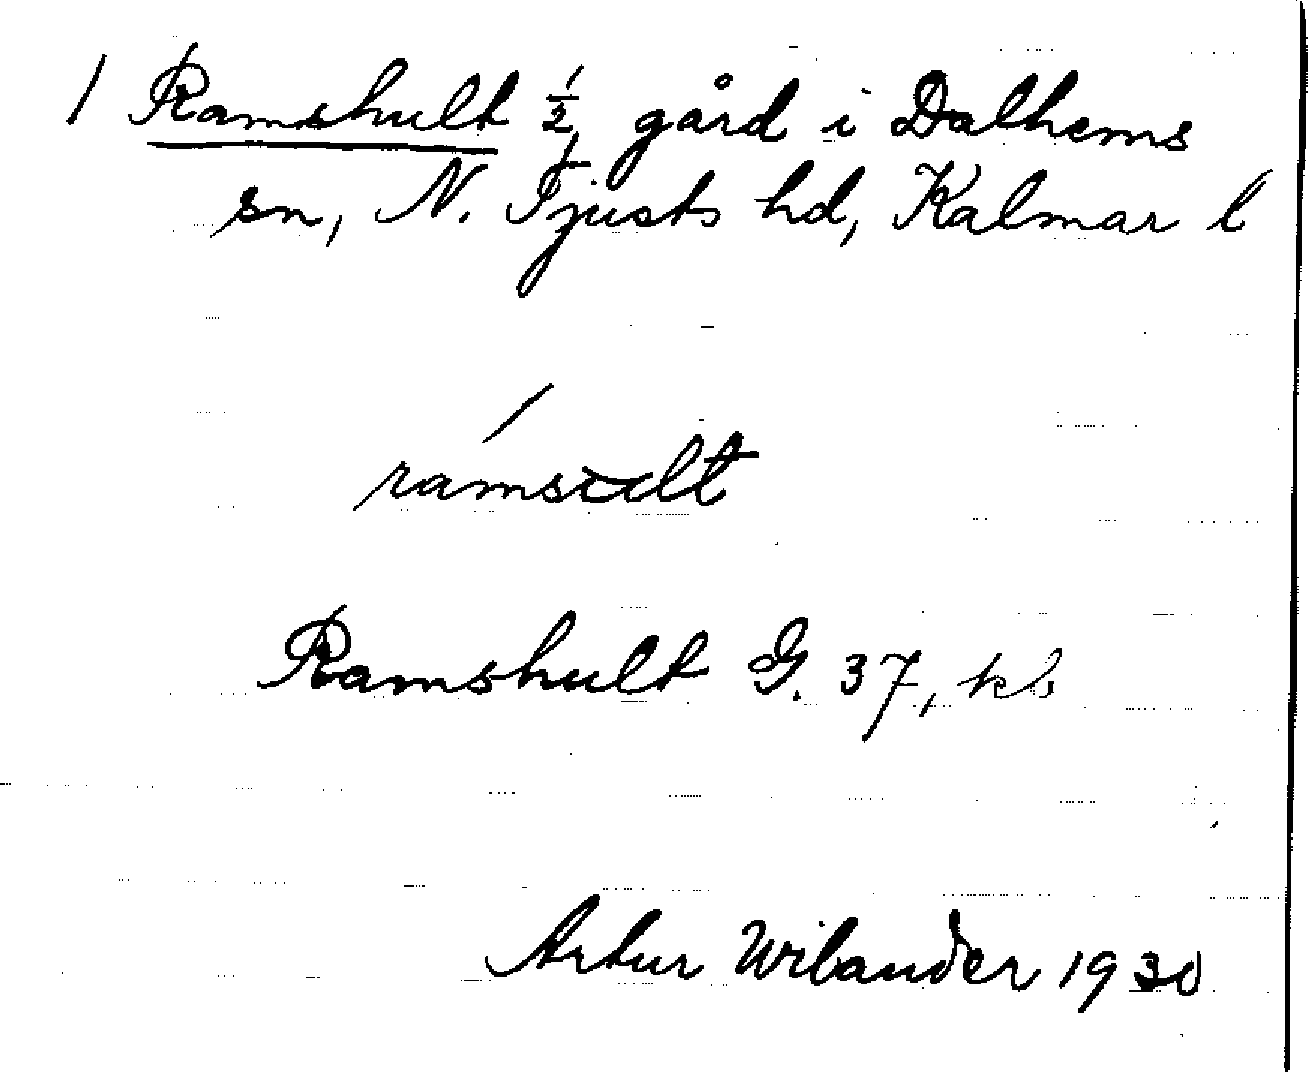 1 Ramshult ½ gård i Dalhems
sn, N. Tjusts hd, Kalmar l
Ramshult G. 37, kb
Artur Wilander 1930